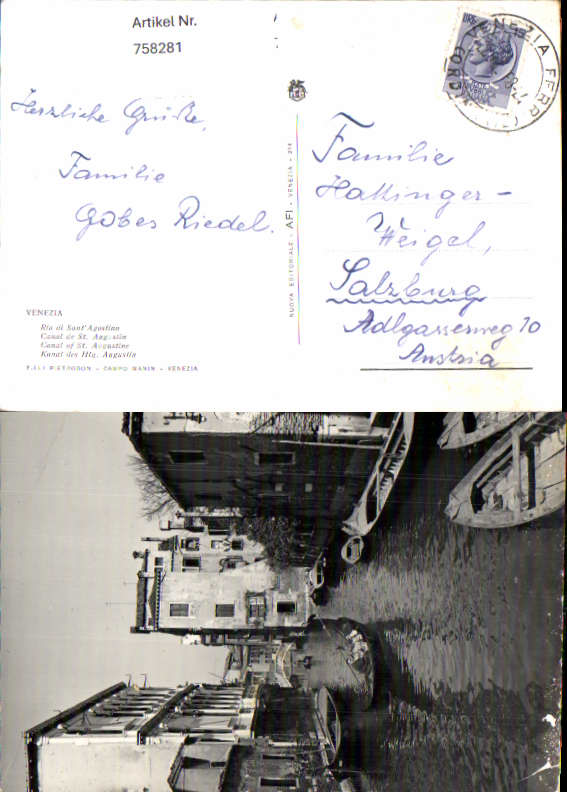 Artikel Nr.
758281
Herzliche Grüße,
Familie
Riedel.
VENEZIA
Rio di Sant'Agostino
Canal de St. Augustin
Canal of St. Augustine
Kanal des Hlg. Augustin
CAMPO MANIN - VENEZIA
NUOVA EDITORIALE - AFI - VENEZIA - 214
VENEZIA FERR
LIRE 15
Familie
Hattinger-
Weigel,
Salzburg
Adlgasserweg 10
Austria